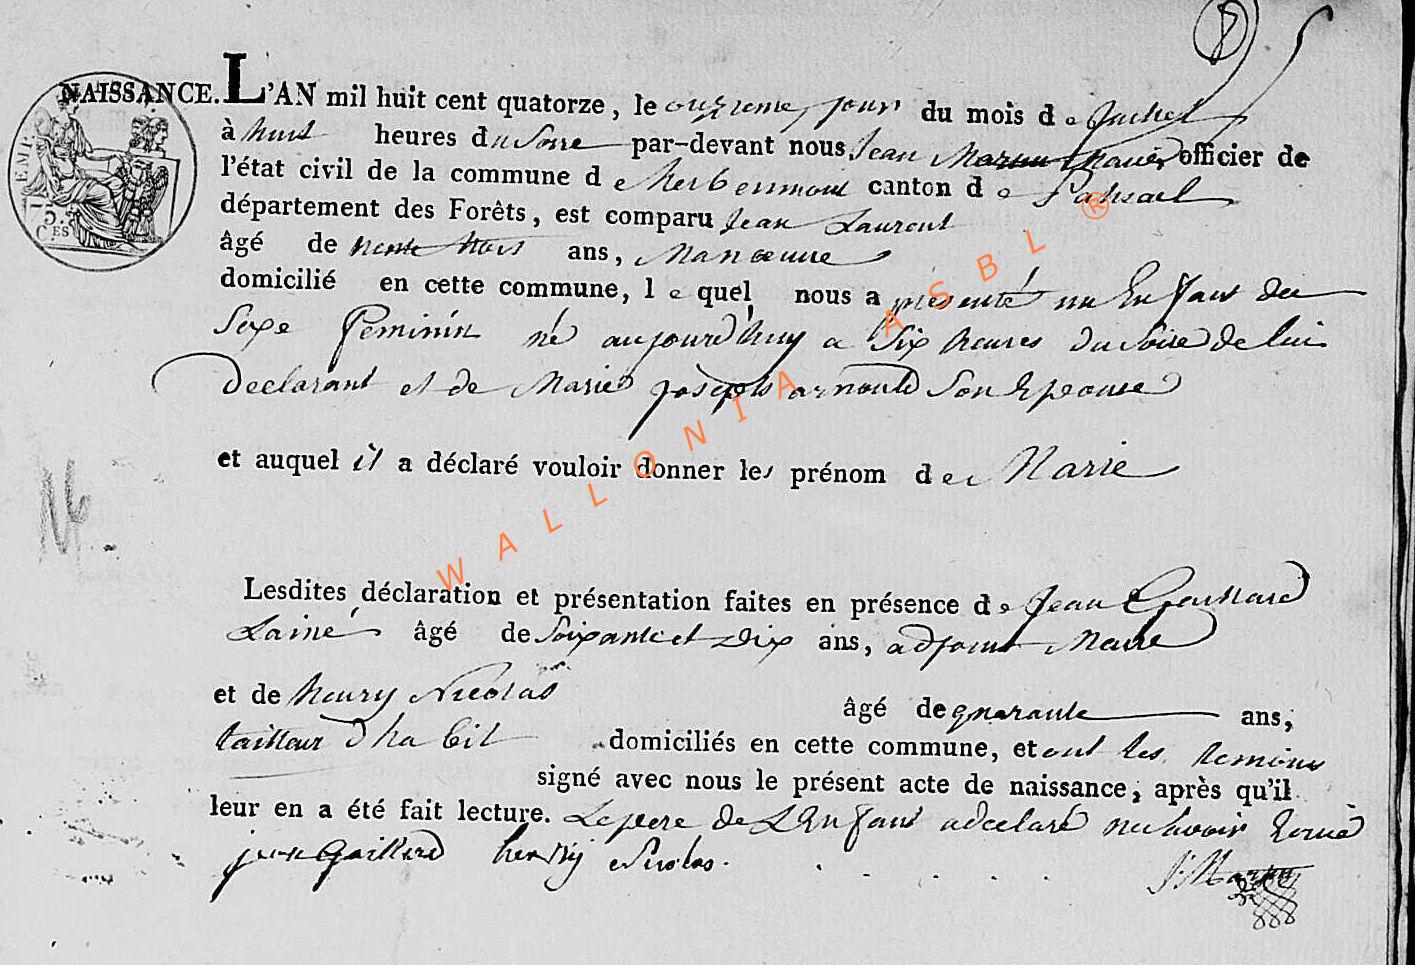 8
NAISSANCE. L'AN mil huit cent quatorze, le onzieme jour du mois de Juillet
à huit heures du Soire par-devant nous Jean Martin Maire officier de
l'état civil de la commune de herbeumont canton de Paliseul
département des Forêts, est comparu Jean Laurent
âgé de trente trois ans, Manœuvre
domicilié en cette commune, lequel nous a présenté un Enfant du
Sexe feminin né aujourd'huy a Six heures du Soire de lui
Declarant et de Marie joseph arnould Son Epouse
et auquel il a déclaré vouloir donner les prénom de Marie
Lesdites déclaration et présentation faites en présence de Jean Gaillard
Lainé âgé de Soixante et Dix ans, adjoint Maire
et de henry Nicolas âgé de quarante ans,
tailleur d habit domiciliés en cette commune, et ont les temoins
signé avec nous le présent acte de naissance, après qu'il
leur en a été fait lecture. Le pere de L'Enfant a declaré ne Savoir
jean Gaillard henry Nicolas. J: Martin
EMP.
5.
CES
WALLONIA ASBL ®